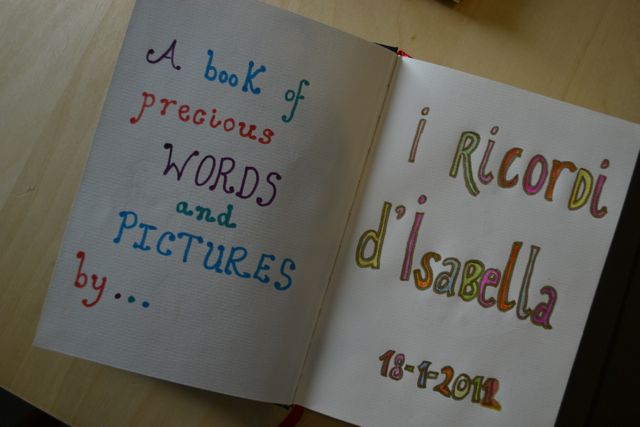 A book of
precious
WORDS
and
PICTURES
by...
i Ricordi
d'Isabella
18-1-2012